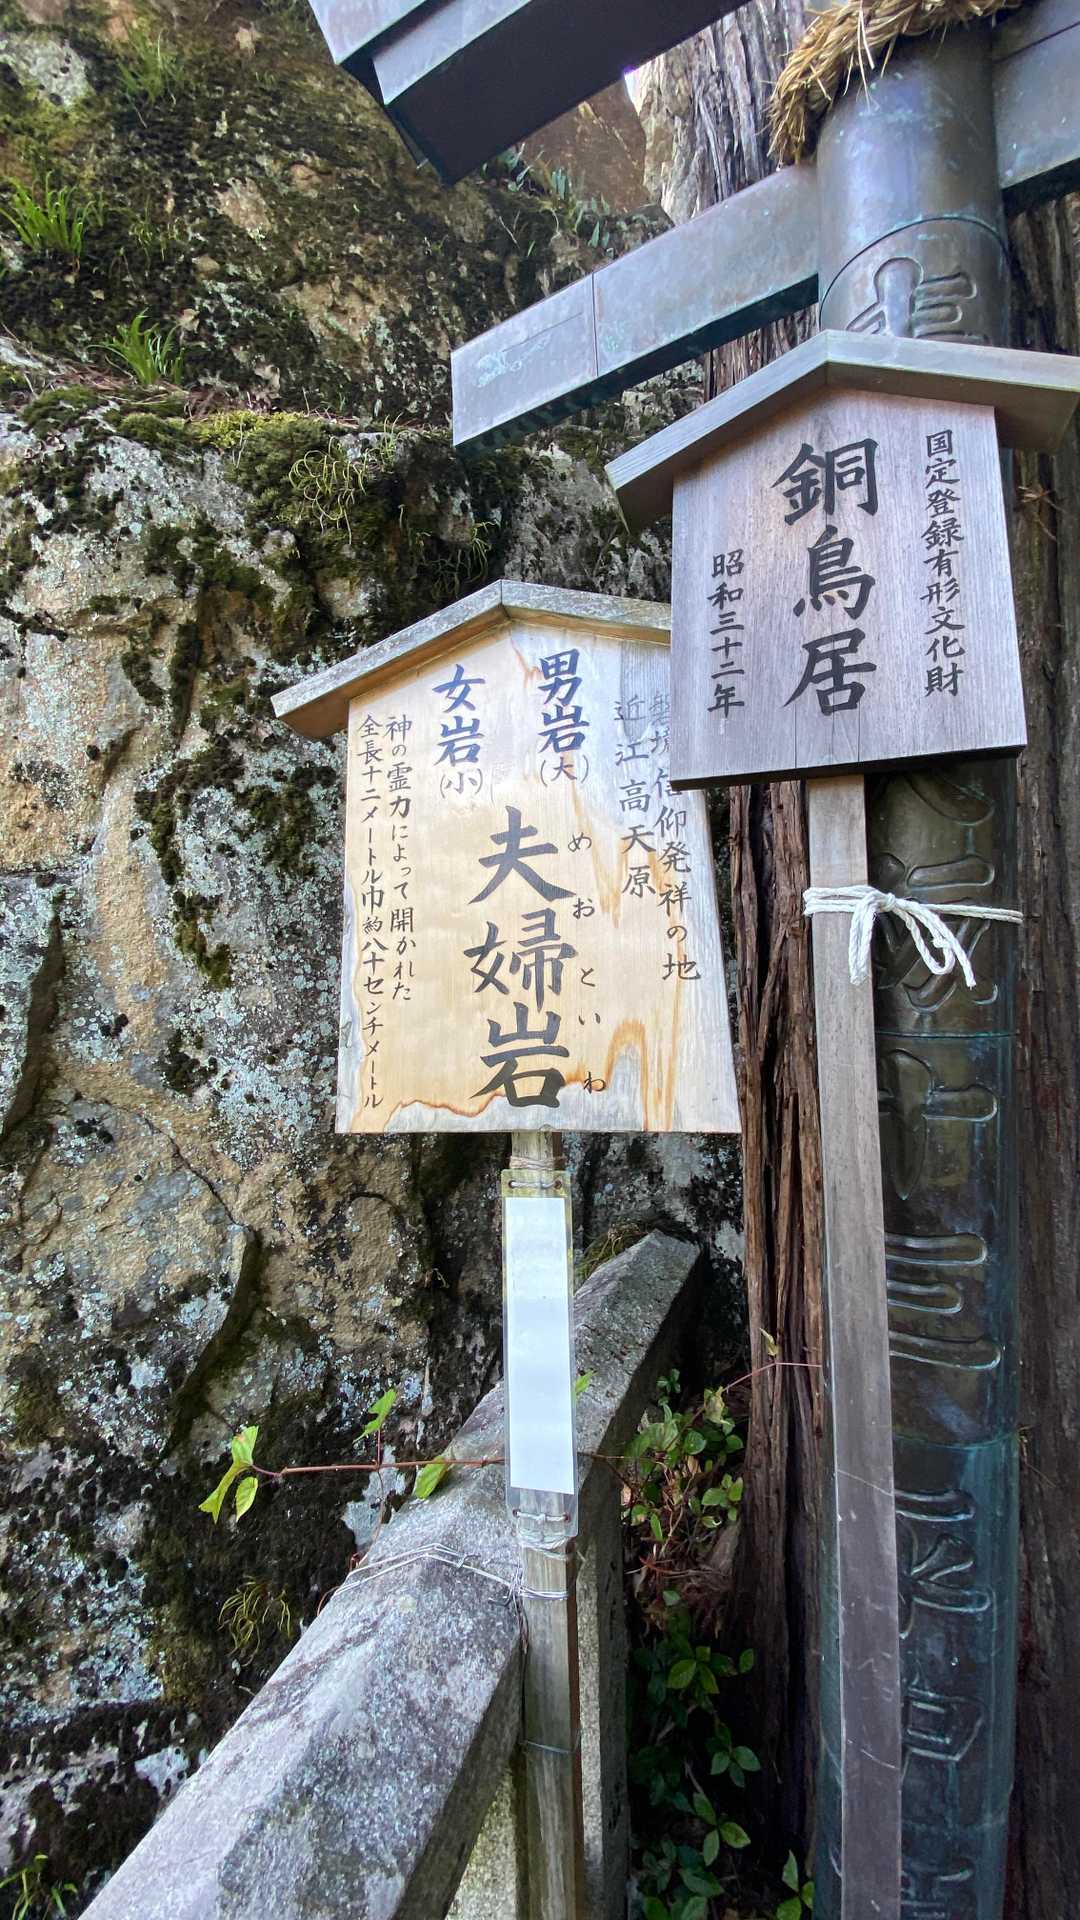 国定登録有形文化財
銅鳥居
昭和三十二年
磐境信仰発祥の地
近江高天原
男岩(大)
女岩(小)
めおといわ
夫婦岩
神の霊力によって開かれた
全長十二メートル巾約八十センチメートル